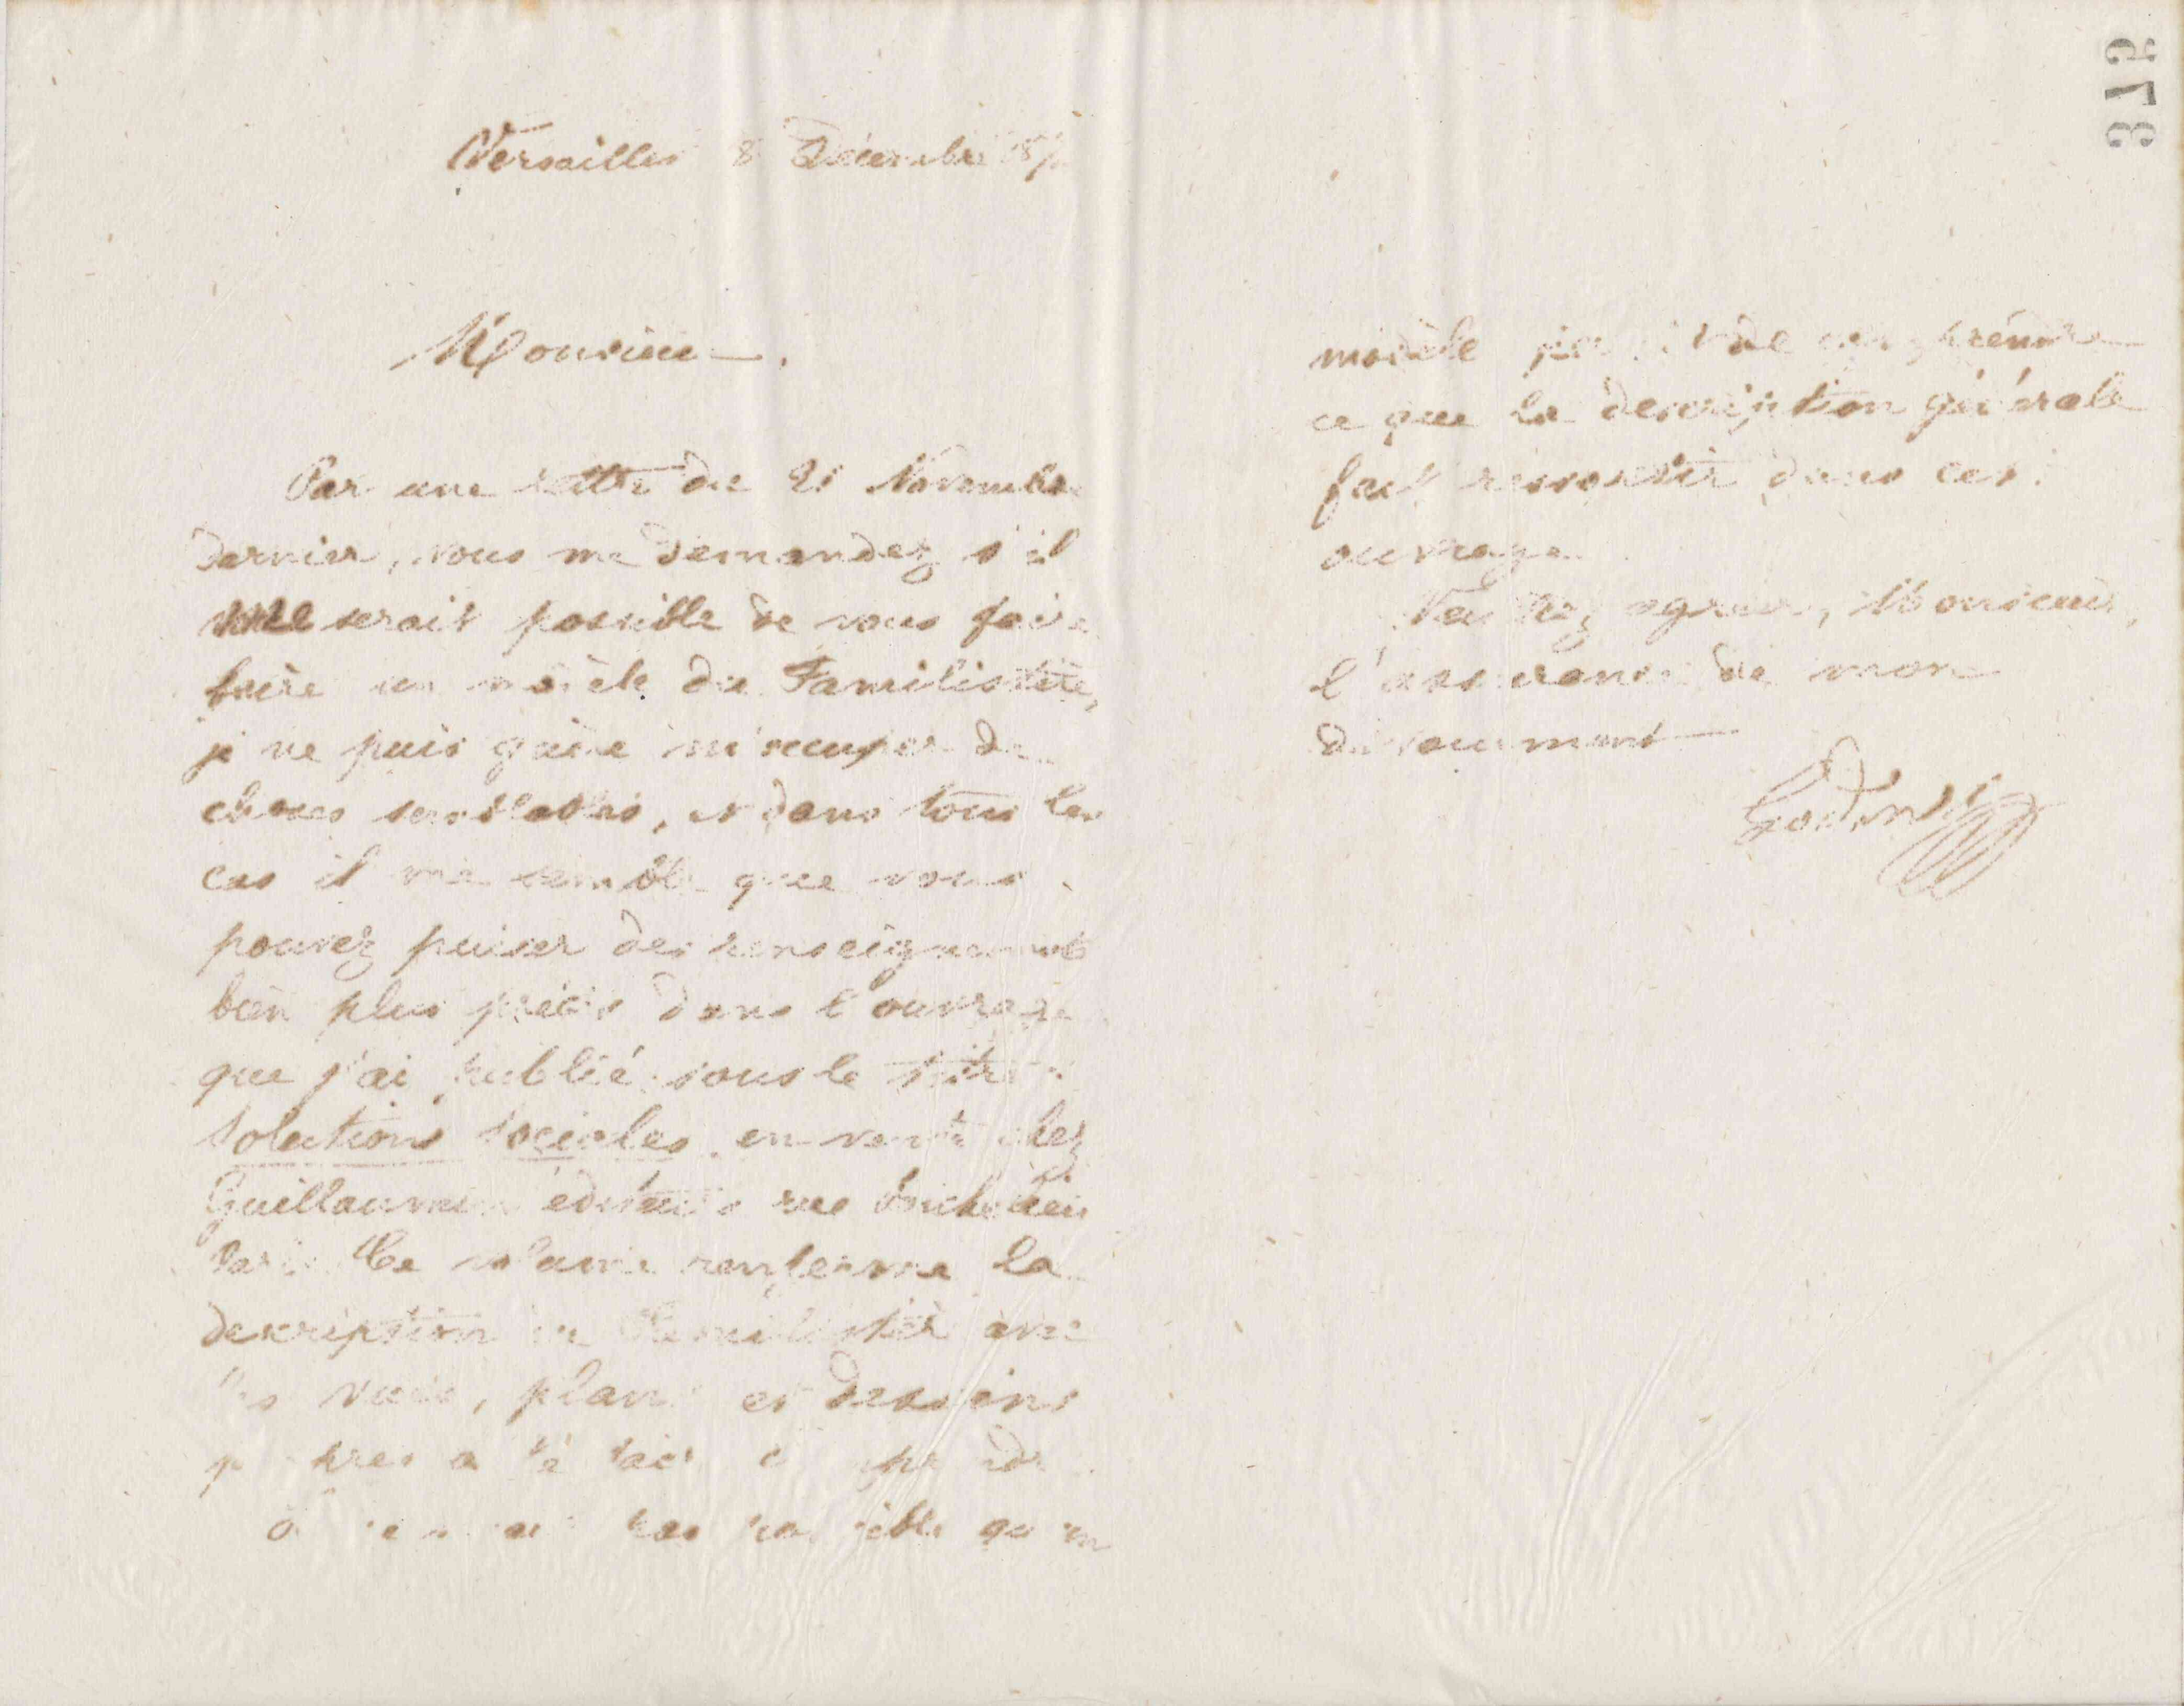 375
Versailles 8 Décembre 187
Monsieur.
Par une lettre du 21 Novembre
dernier, vous me demandez s'il
serait possible de vous faire
faire un modèle du Familistère,
je ne puis guère m'occuper de
choses semblables, et dans tous les
cas il me semble que vous
pouvez puiser des renseignements
bien plus précis dans l'ouvrage
que j'ai publié sous le titre
Solutions sociales en vente chez
Guillaumin éditeur rue Richelieu
Paris Ce volume renferme la
description du Familistère avec
les vues, plans et dessins
pas possible qu'un
modèle de comprendre
ce que la description générale
fait ressortir dans cet
ouvrage.
Veuillez agréer, Monsieur,
l'assurance de mon
dévouement
Godin